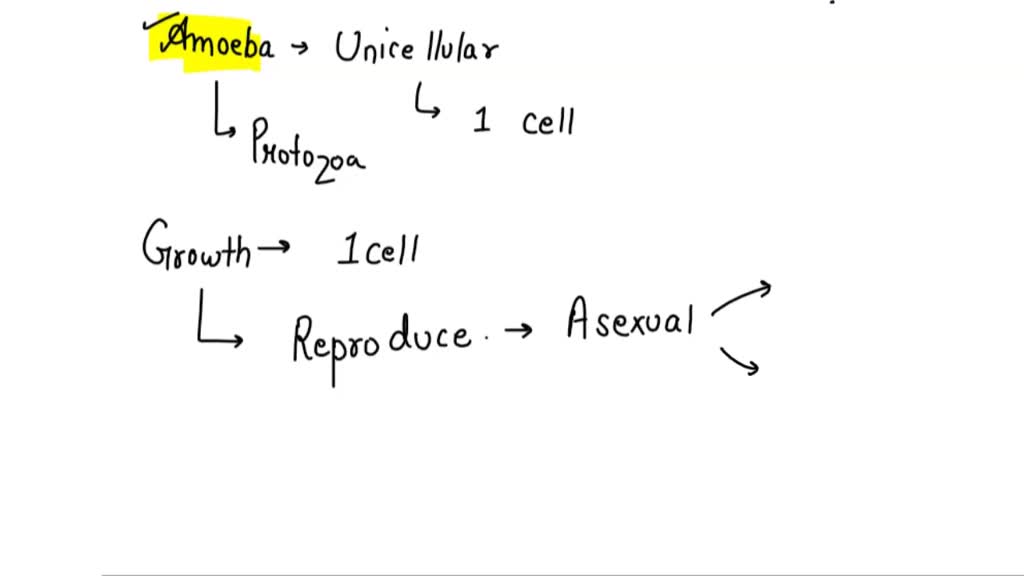 Amoeba → Unicellular
↳ 1 cell
↳ Protozoa
Growth → 1 cell
↳ Reproduce. → Asexual